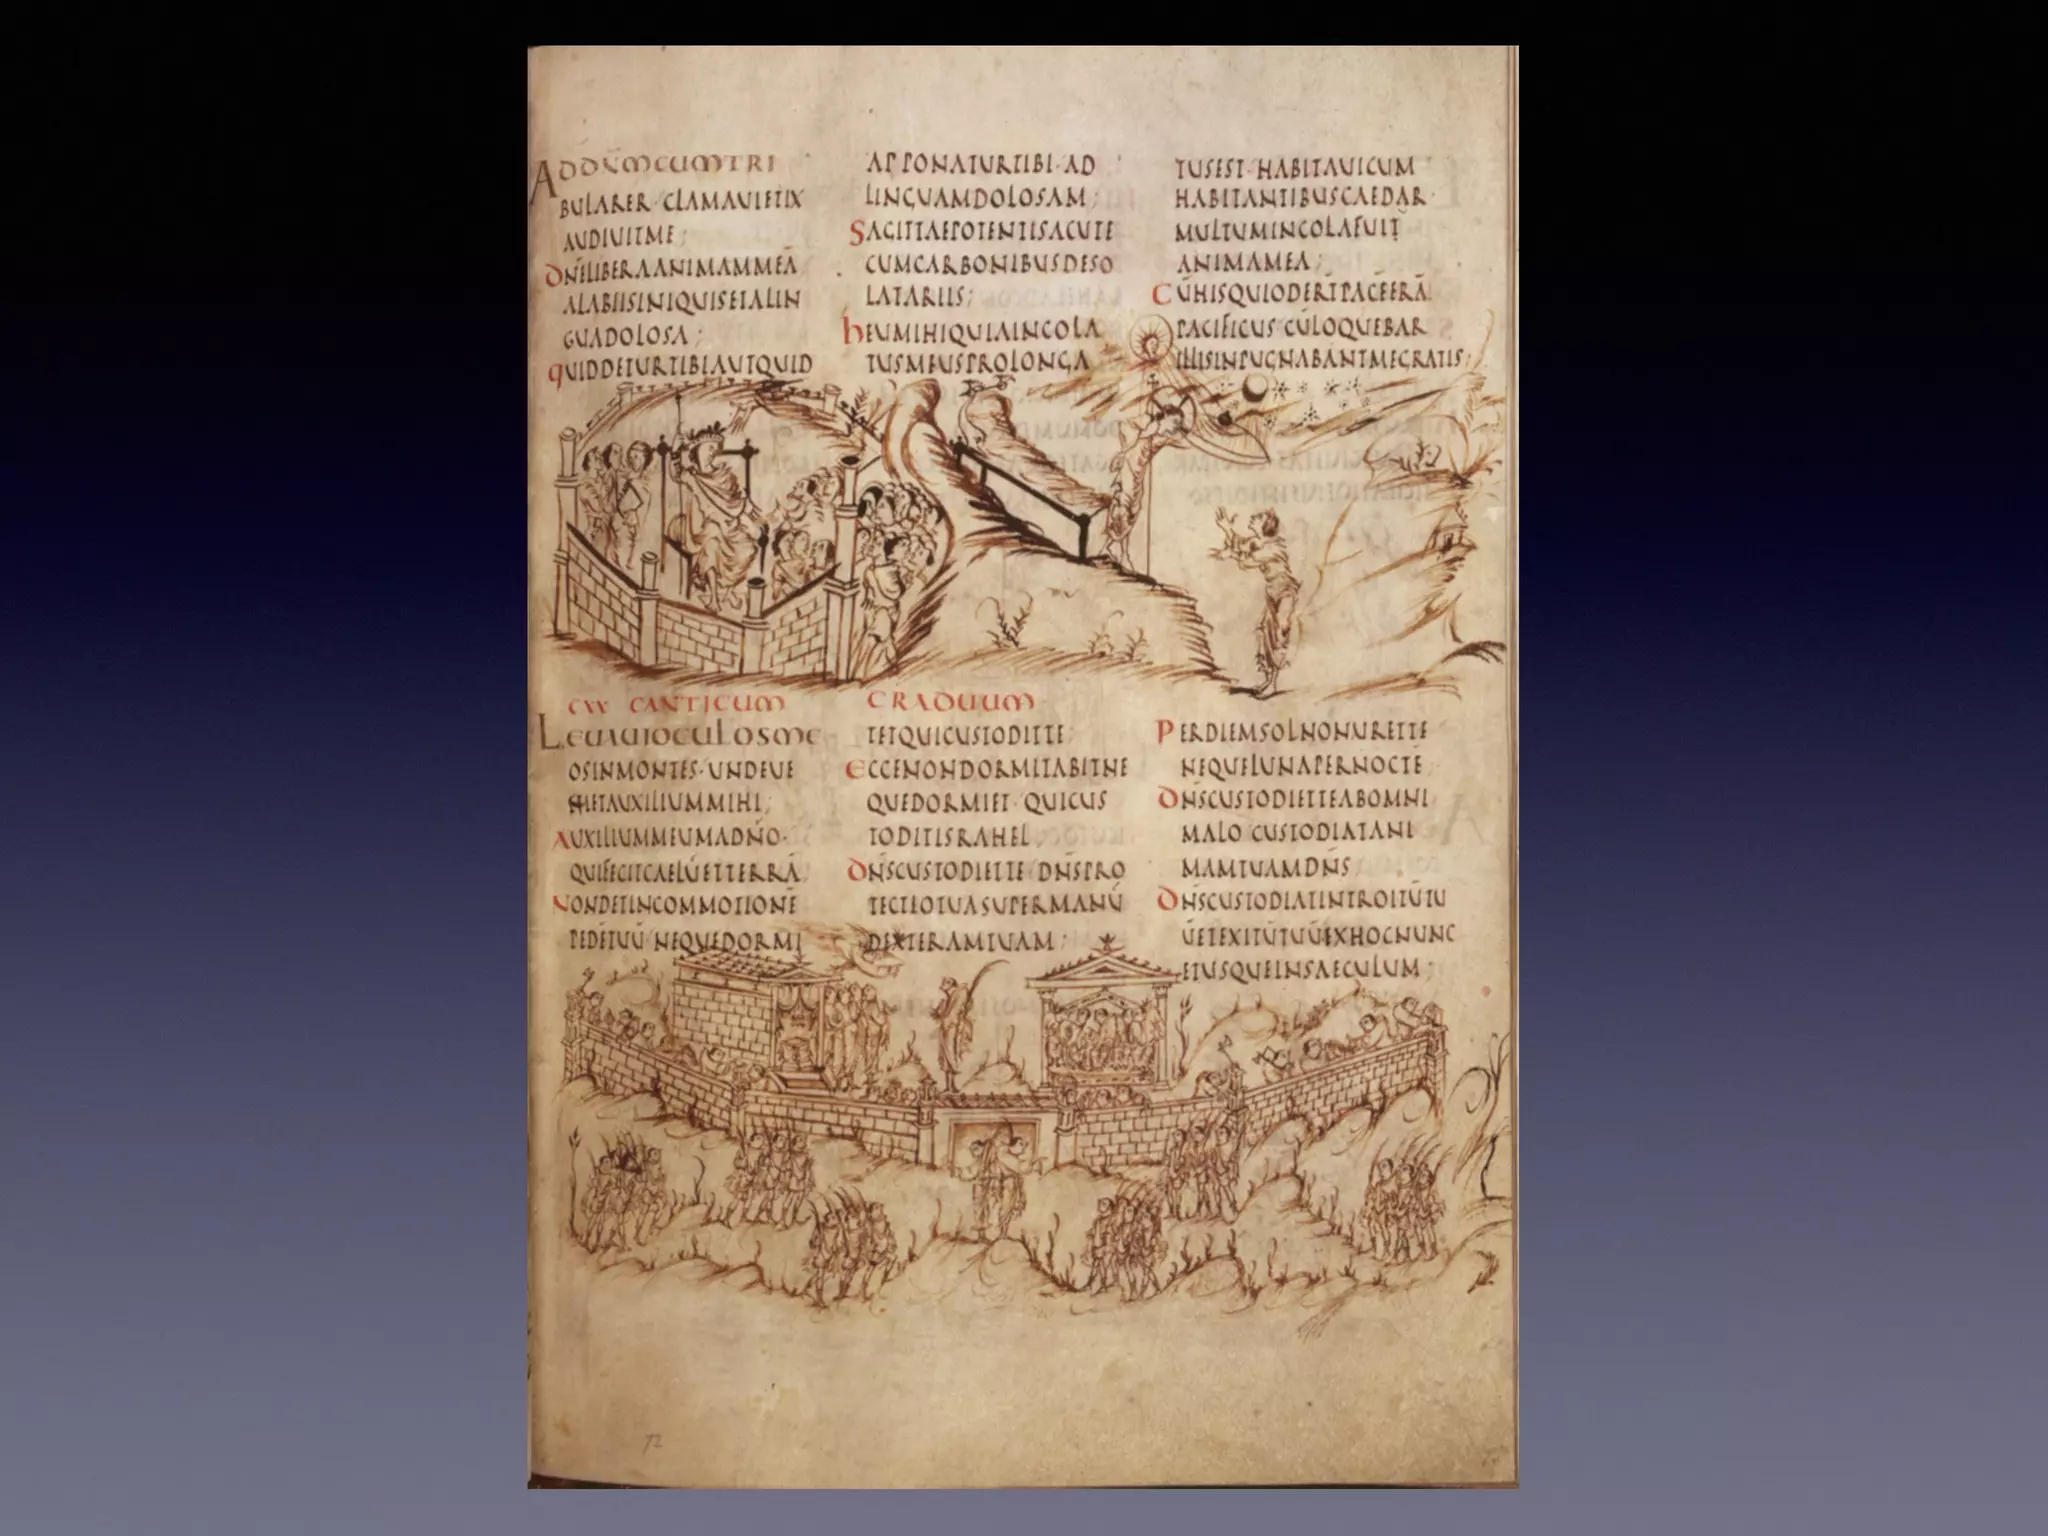 ADDN̄MCUMTRI
BULARER·CLAMAUIETEX
AUDIUITME;
DN̄ELIBERAANIMAMMEĀ
ALABIISINIQUISETALIN
GUADOLOSA;
QUIDDETURTIBIAUTQUID
APPONATURTIBI·AD
LINGUAMDOLOSAM;
SAGITTAEPOTENTISACUTE
CUMCARBONIBUSDESO
LATARIIS;
HEUMIHIQUIAINCOLA
TUSMEUSPROLONGA
TUSEST·HABITAUICUM
HABITANTIBUSCAEDAR·
MULTUMINCOLAFUIT
ANIMAMEA;
CŪHISQUIODERT̄PACĒERĀ
PACIFICUS·CŪLOQUEBAR
ILLISINPUGNABANTMEGRATIS;
CXX CANTICUM GRADUUM
LEUAUIOCULOSME
OSINMONTES·UNDEUE
NIETAUXILIUMMIHI;
AUXILIUMMEUMADN̄O·
QUIFECITCAELŪETTERRĀ
NONDETINCOMMOTIONĒ
PEDĒTUŪ NEQUEDORMI
TETQUICUSTODITTE;
ECCENONDORMITABITNE
QUEDORMIET·QUICUS
TODITISRAHEL
DN̄SCUSTODIETTE DN̄SPRO
TECTIOTUASUPERMANŪ
DEXTERAMTUAM;
PERDIEMSOLNONURETTE
NEQUELUNAPERNOCTĒ
DN̄SCUSTODIETTEABOMNI
MALO CUSTODIATANI
MAMTUAMDN̄S
DN̄SCUSTODIATINTROITŪTU
ŪETEXITŪTUŪEXHOCNUNC
ETUSQUEINSAECULUM;
72